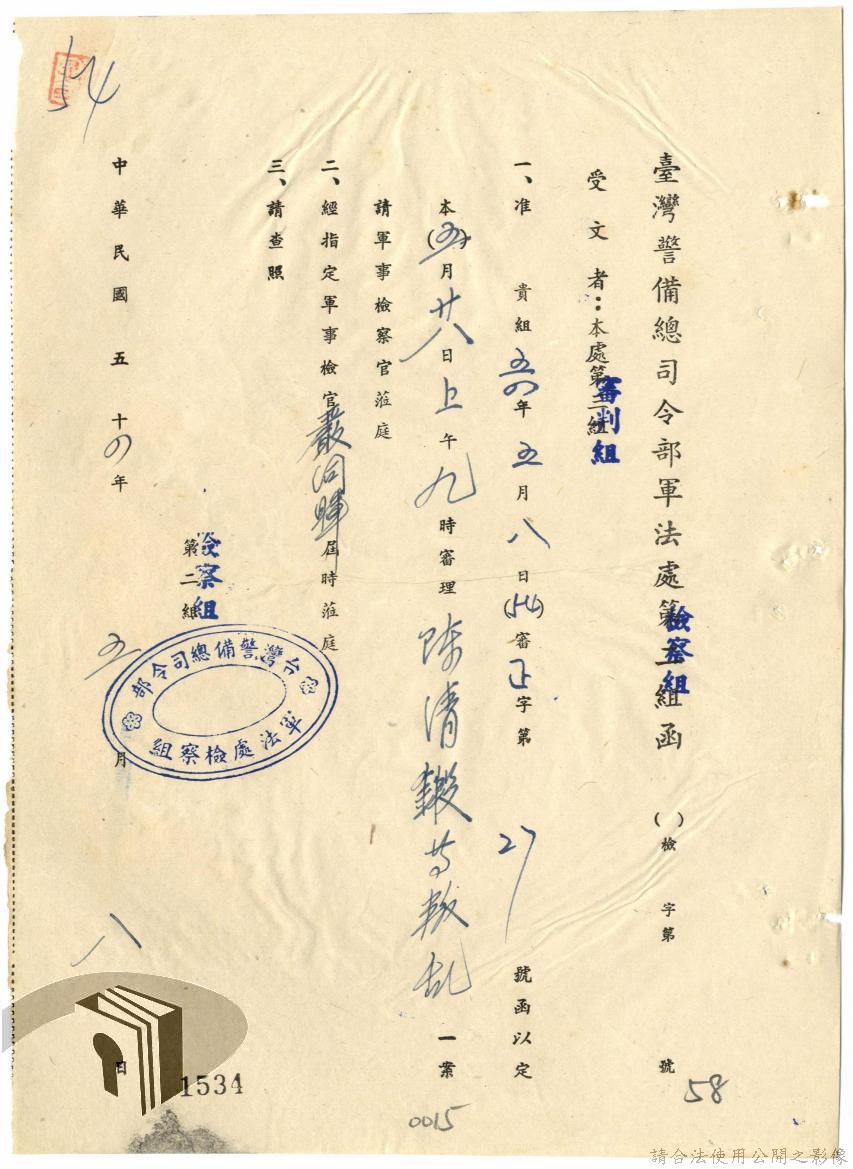 臺灣警備總司令部軍法處第二組函 ( )檢 字第 號
檢察組
受文者：本處第三組
審判組
一、准 貴組五四年五月八日(54)審正字第27號函以定
本(五)月廿八日上午九時審理陳清鍛等叛乱一案
請軍事檢察官蒞庭
二、經指定軍事檢官嚴 屆時蒞庭
三、請查照
第二組
檢察組
台灣警備總司令部
軍法處檢察組
中華民國 五十四年 五月 八日
1534
0015
58
請合法使用公開之影像